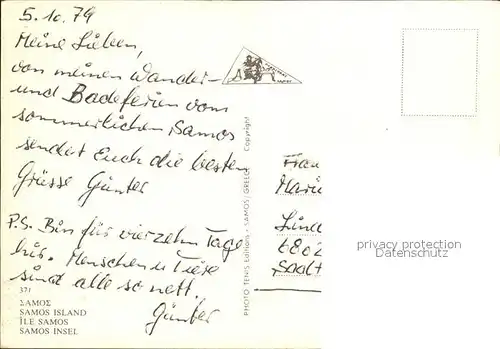 5.10.79
Meine Lieben,
von meinen Wander-
und Badeferien vom
sommerlichen Samos
sendet Euch die besten
Grüsse Günter
P.S. Bin für vierzehn Tage
hier. Menschen u Tiere
sind alle so nett.
Günter
371
ΣΑΜΟΣ
SAMOS ISLAND
ÎLE SAMOS
SAMOS INSEL
PHOTO TENIS Editions - SAMOS / GREECE Copyright
Frau
Mari
Lind
6802
privacy protection
Datenschutz